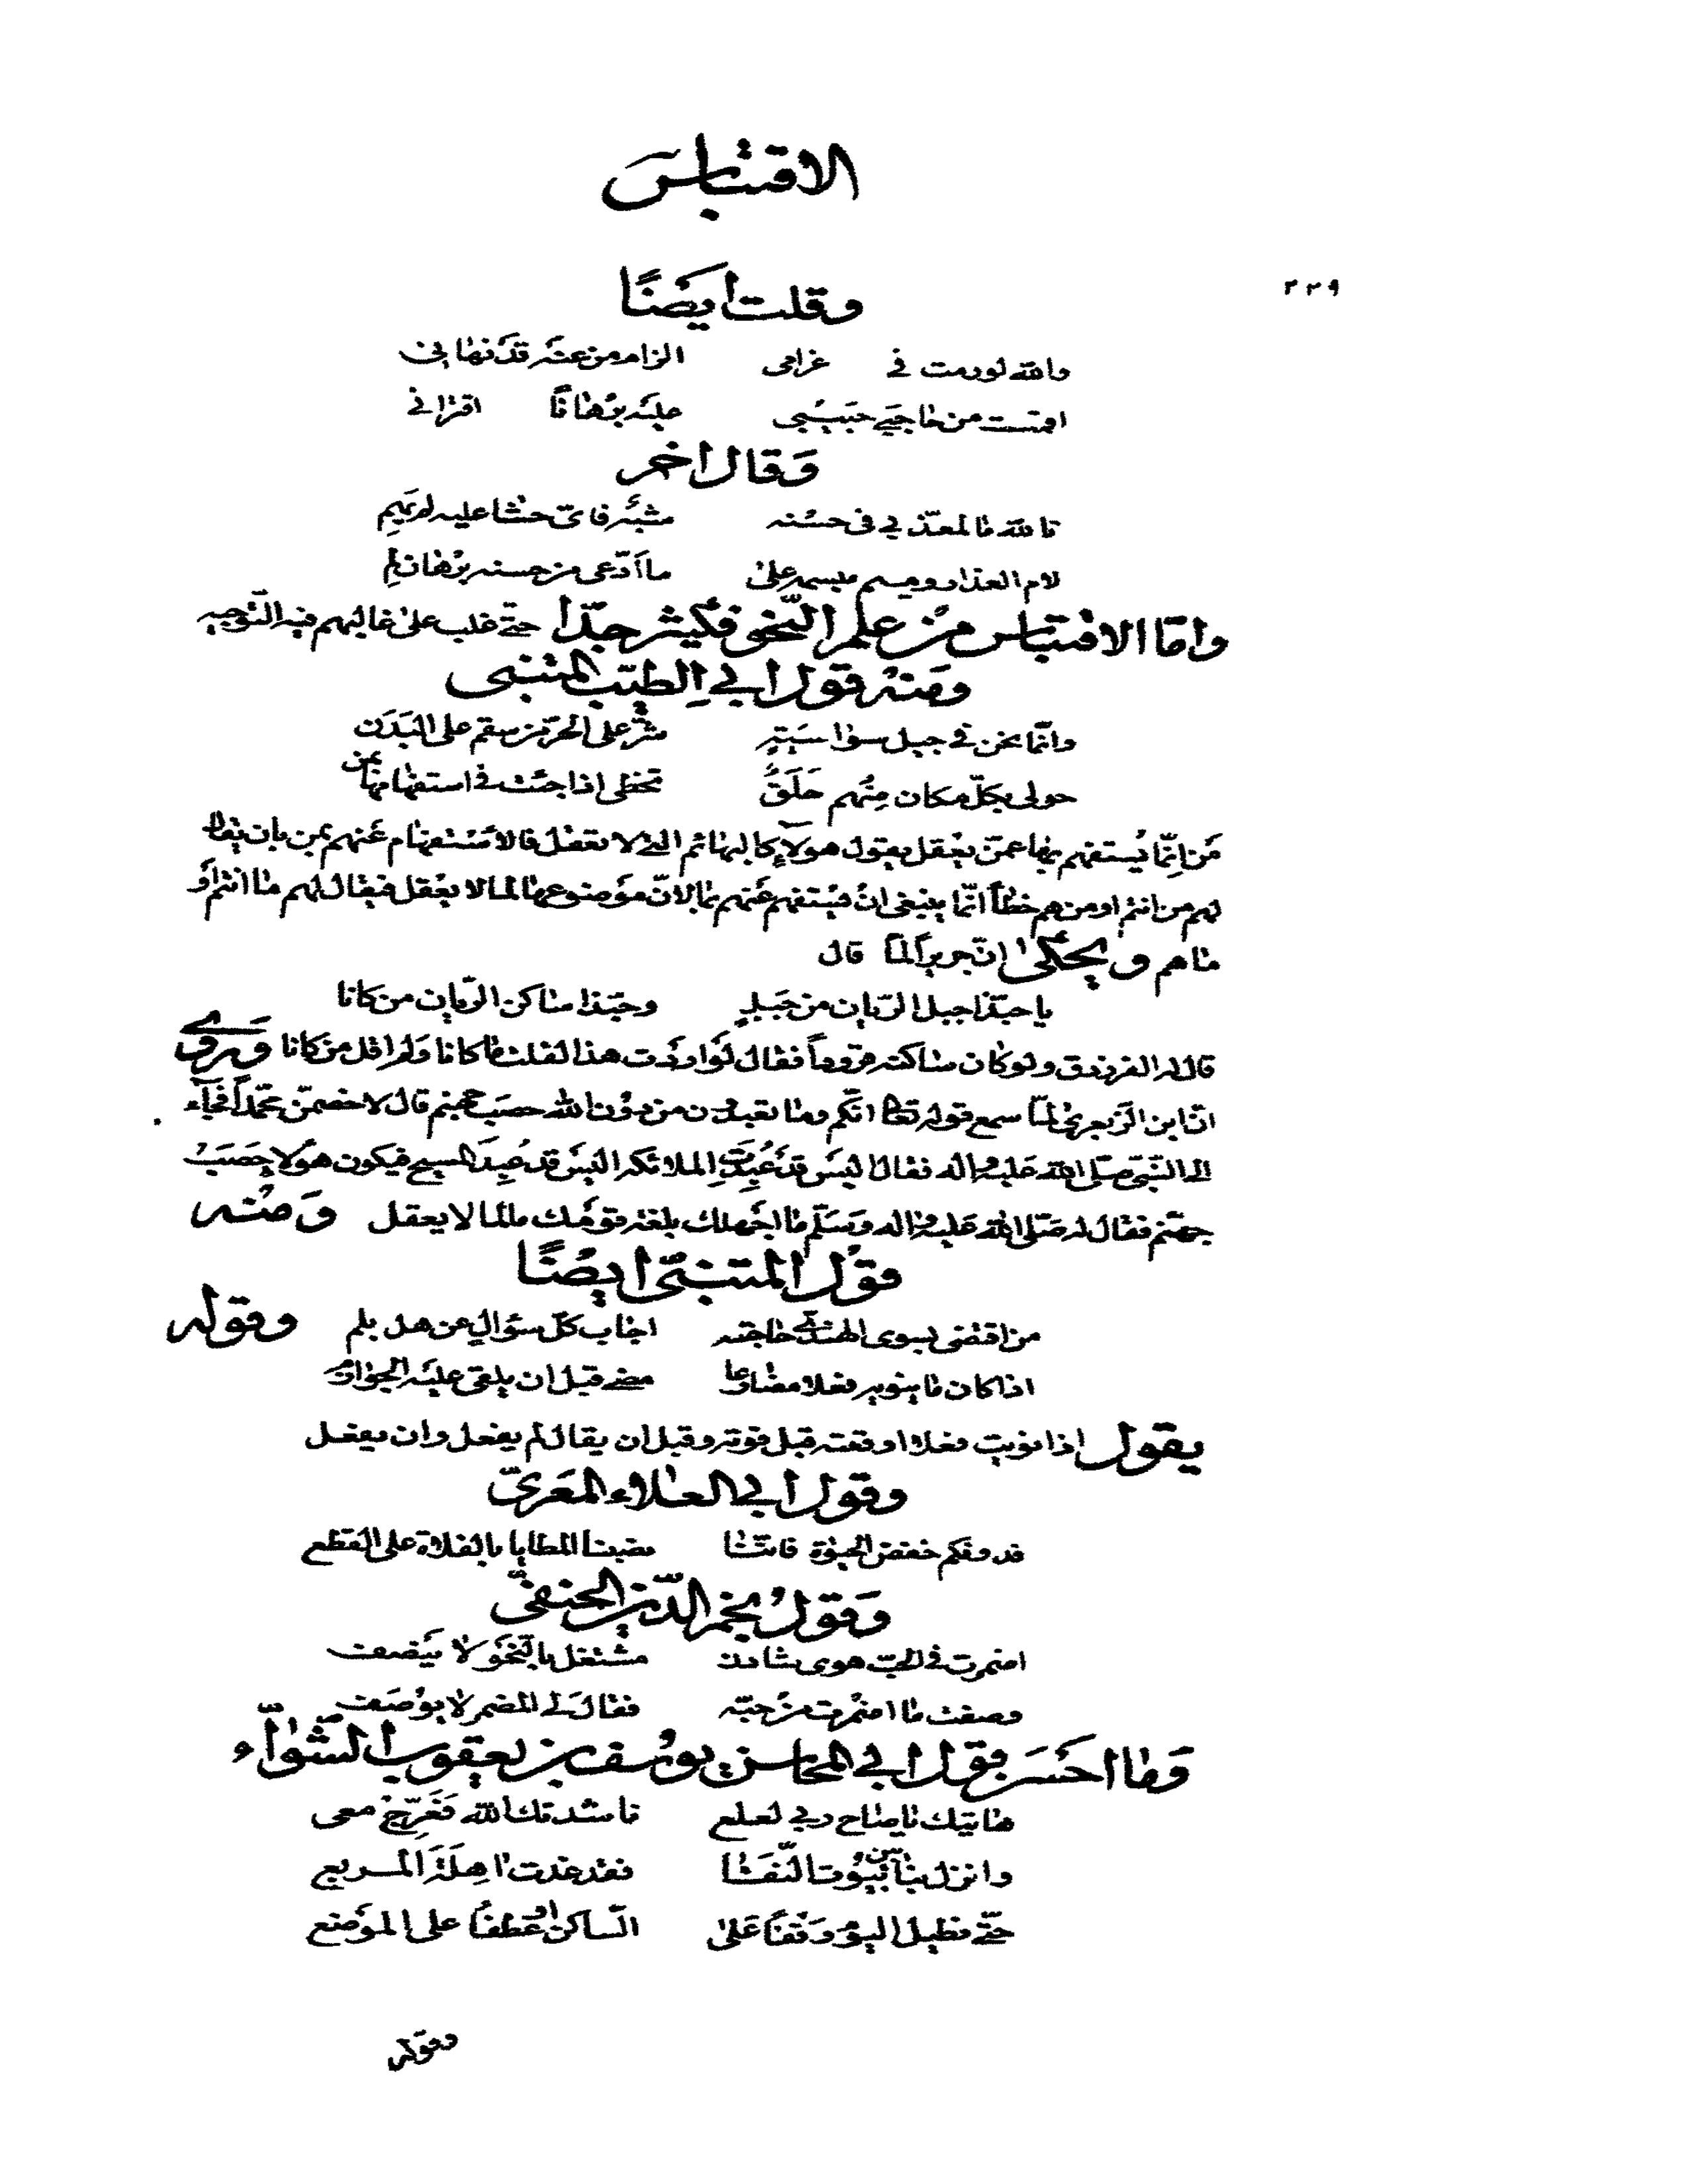 الاقتباس
٢٢٩
وقلت ايضًا
والله لو رمت في غرامي الزام من عنه قد نهاني
اقمت من حاجبي حبيبي عليه برهانا اقتراني
وقال اخر
تالله ما لمعذبي في حسنه مشبه فاي حشا عليه لم يهم
لام العذار وميم مبسمه على ما ادّعى من حسنه برهان لم
وامّا الاقتباس من علم النّحو فكثير جدّا حتّى غلب على غالبهم فيه التّوجيه
ومنه قول ابي الطيّب المتنبى
وانّما نحن في جيل سواسيةٍ شرّ على الحرّ من سقم على البدن
حولى بكلّ مكان منهم حلق تخطى اذا جئت في استفهامها بمن
من انّما يستفهم بها عمّن يعقل يقول هولاء كالبهائم التى لا تعقل فالاستفهام عنهم بمن بان يقال
لهم من انتم او من هم خطأ انّما ينبغى ان يستفهم عنهم بما لانّ موضوعها لما لا يعقل فيقال لهم ما انتم او
ما هم ويحكى انّ جريراً لمّا قال
يا حبّذا جبل الريّان من جبلٍ وحبّذا ساكن الريّان من كانا
قال له الفرزدق ولو كان ساكنه قروداً فقال لو اردت هذا لقلت ما كانا ولم اقل من كانا وروى
انّ ابن الزبعرى لمّا سمع قوله تعالى انّكم وما تعبدون من دون الله حصب جهنم قال لاخصمنّ محمّداً فجاء
الى النّبىّ صلى الله عليه واله فقال اليس قد عُبدت الملائكه اليس قد عبد المسيح فيكون هولا حصب
جهنّم فقال له صلّى الله عليه واله وسلّم ما اجهلك بلغة قومك ما لما لا يعقل ومنه
قول المتنبّى ايضًا
من اقتضى بسوى الهندىّ حاجته اجاب كلّ سؤال عن هل بلم وقوله
اذا كان ما ينويه فعلا مضارعا مضى قبل ان يلقى عليه الجوازم
يقول اذا نويت فعلا اوقعته قبل فوته وقبل ان يقال لم يفعل وان يفعل
وقول ابي العلاء المعريّ
فدونكم خفض الحيوة فانّنا نصبنا المطايا بالفلاة على القطع
وقول نجم الدّين الحنفىّ
اضمرت في الحبّ هوى شادن مشتغل بالنّحو لا ينصف
وصفت ما اضمرت من حبّه فقال لي المضمر لا يوصف
وما احسن قول ابي المحاسن يوسف بن يعقوب الشّوّاء
هاتيك يا صاح ربي لعلع ناشدتك الله فعرّج معى
وانزل بنا بين بيوت النّقا فقد غدت اهلة المربع
حتّى نطيل اليوم وقفاً على الساكن او عطفاً على الموضع
وقوله